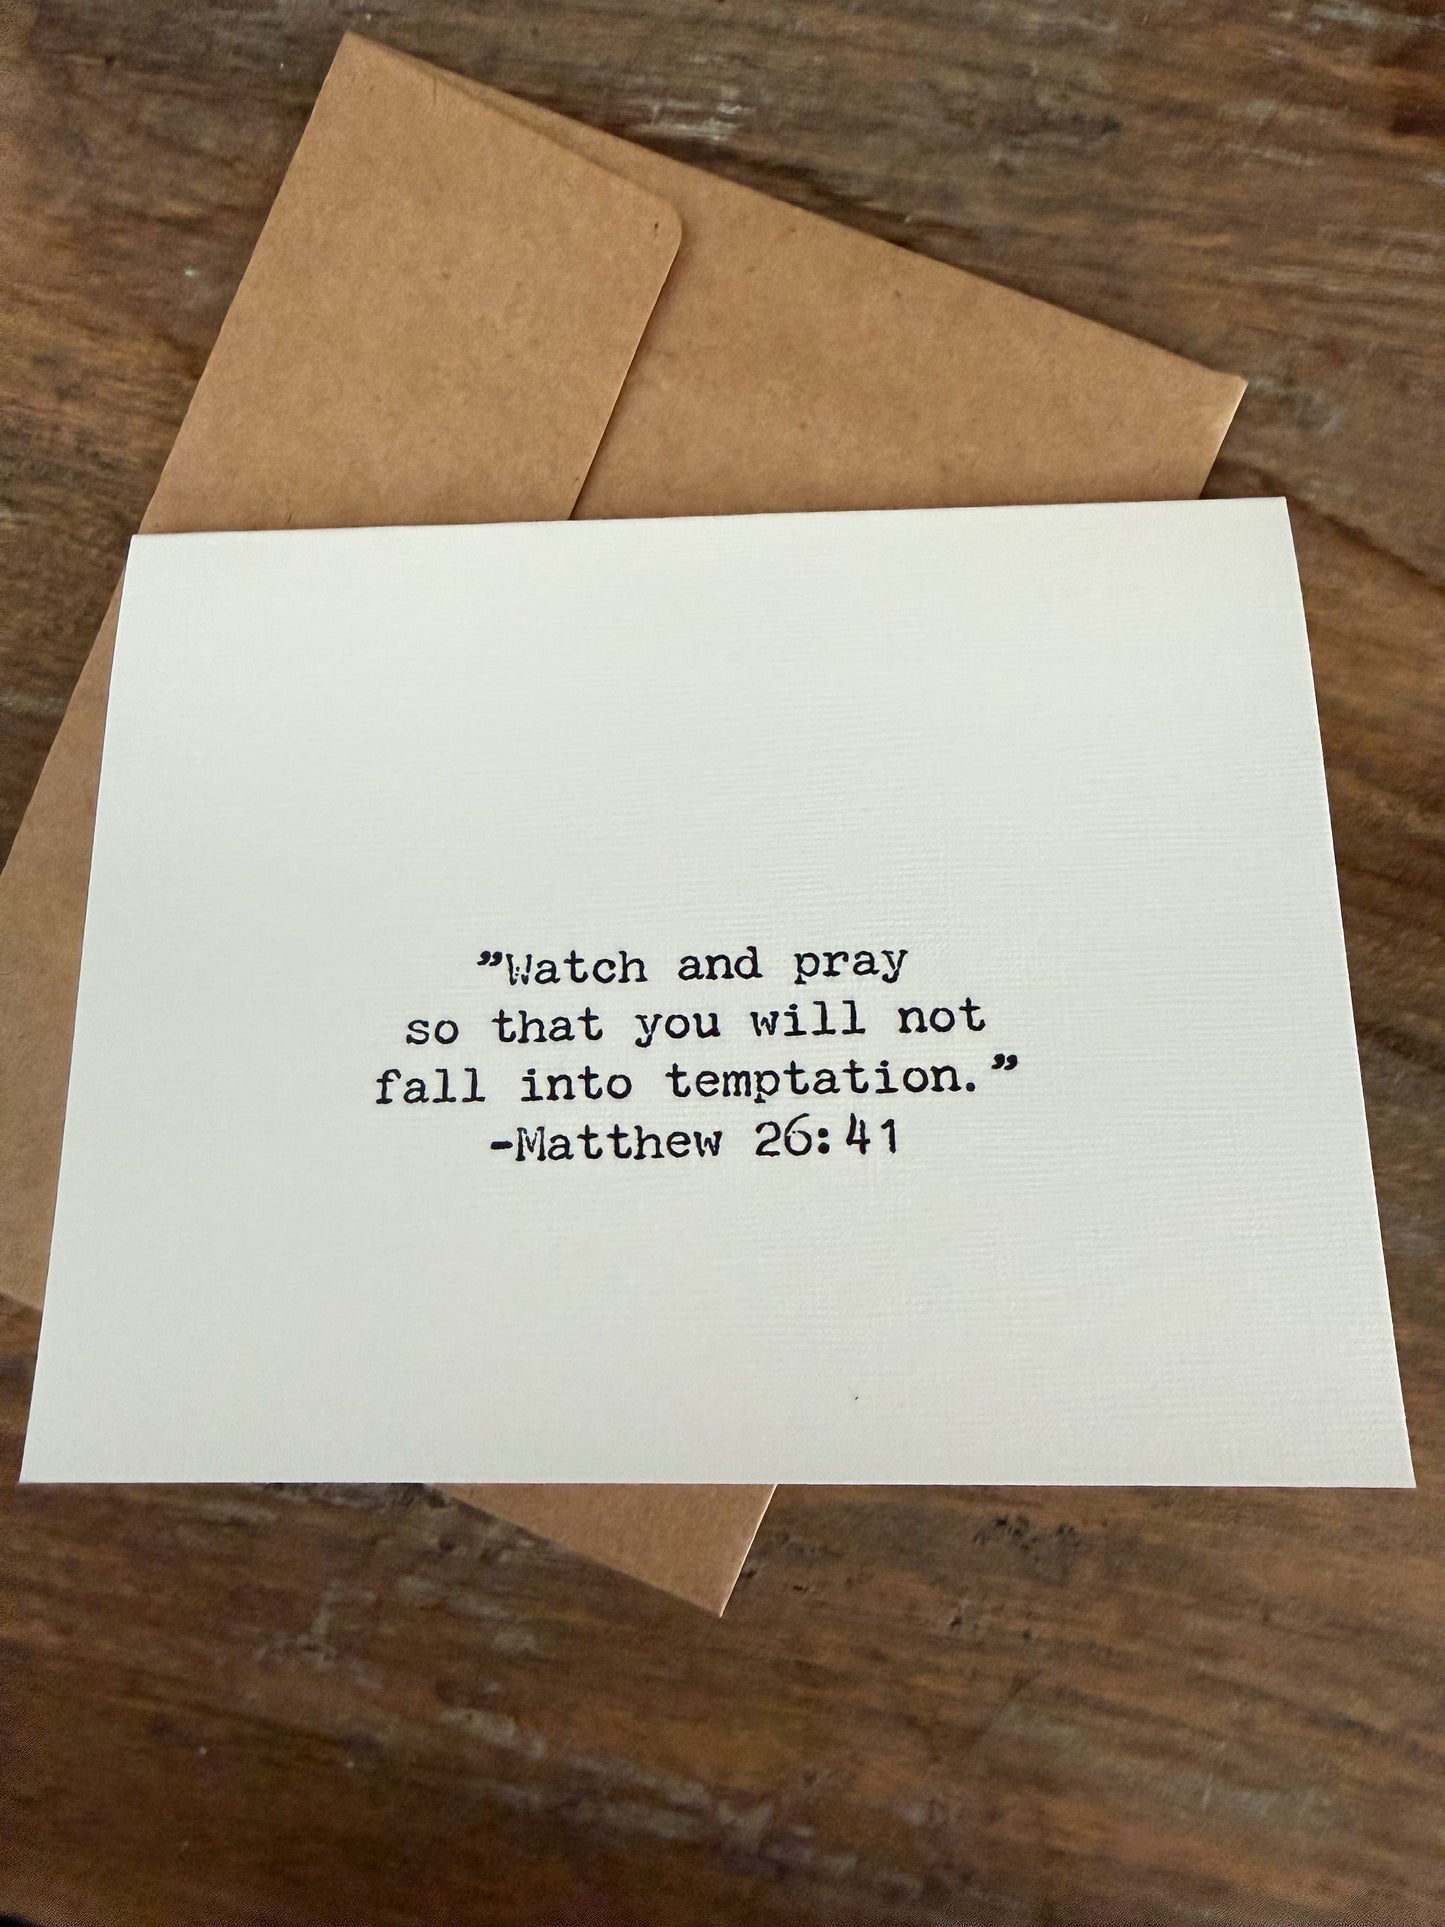 ”Watch and pray
so that you will not
fall into temptation.”
-Matthew 26:41